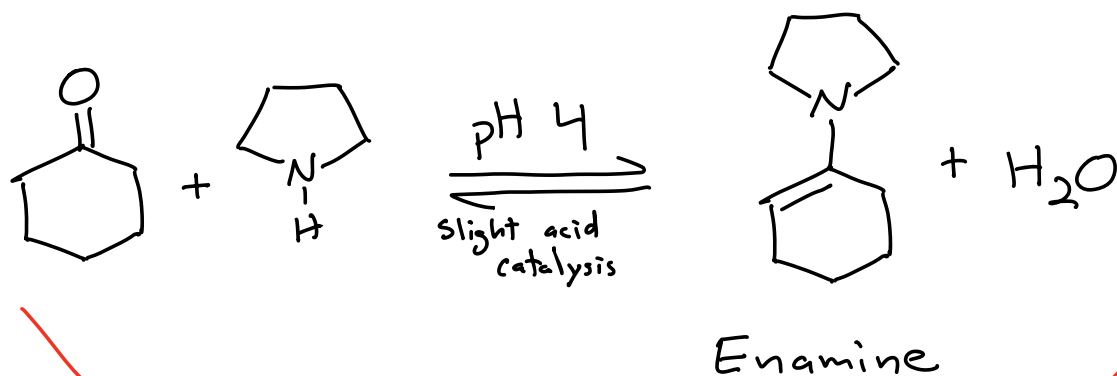 O
+
N
H
pH 4
slight acid
catalysis
N
+ H₂O
Enamine